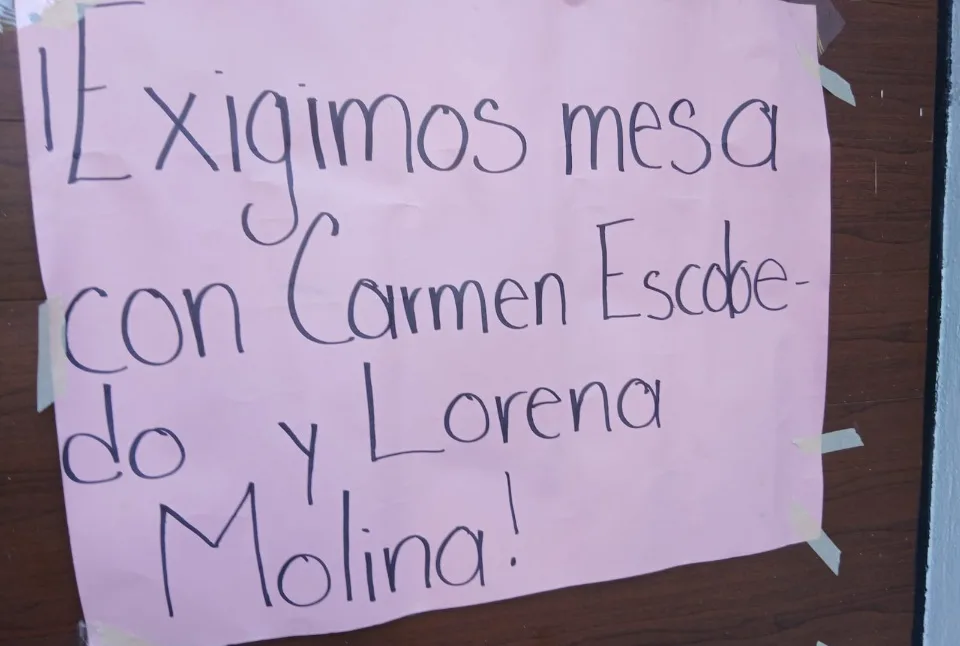 ¡Exigimos mesa
con Carmen Escobe-
do y Lorena
Molina!